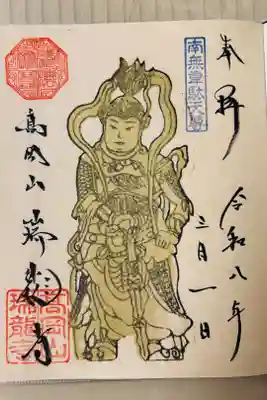 奉拜
令和八年
三月一日
南無韋駄天尊
高岡山 瑞龍寺
高岡山
瑞龍寺